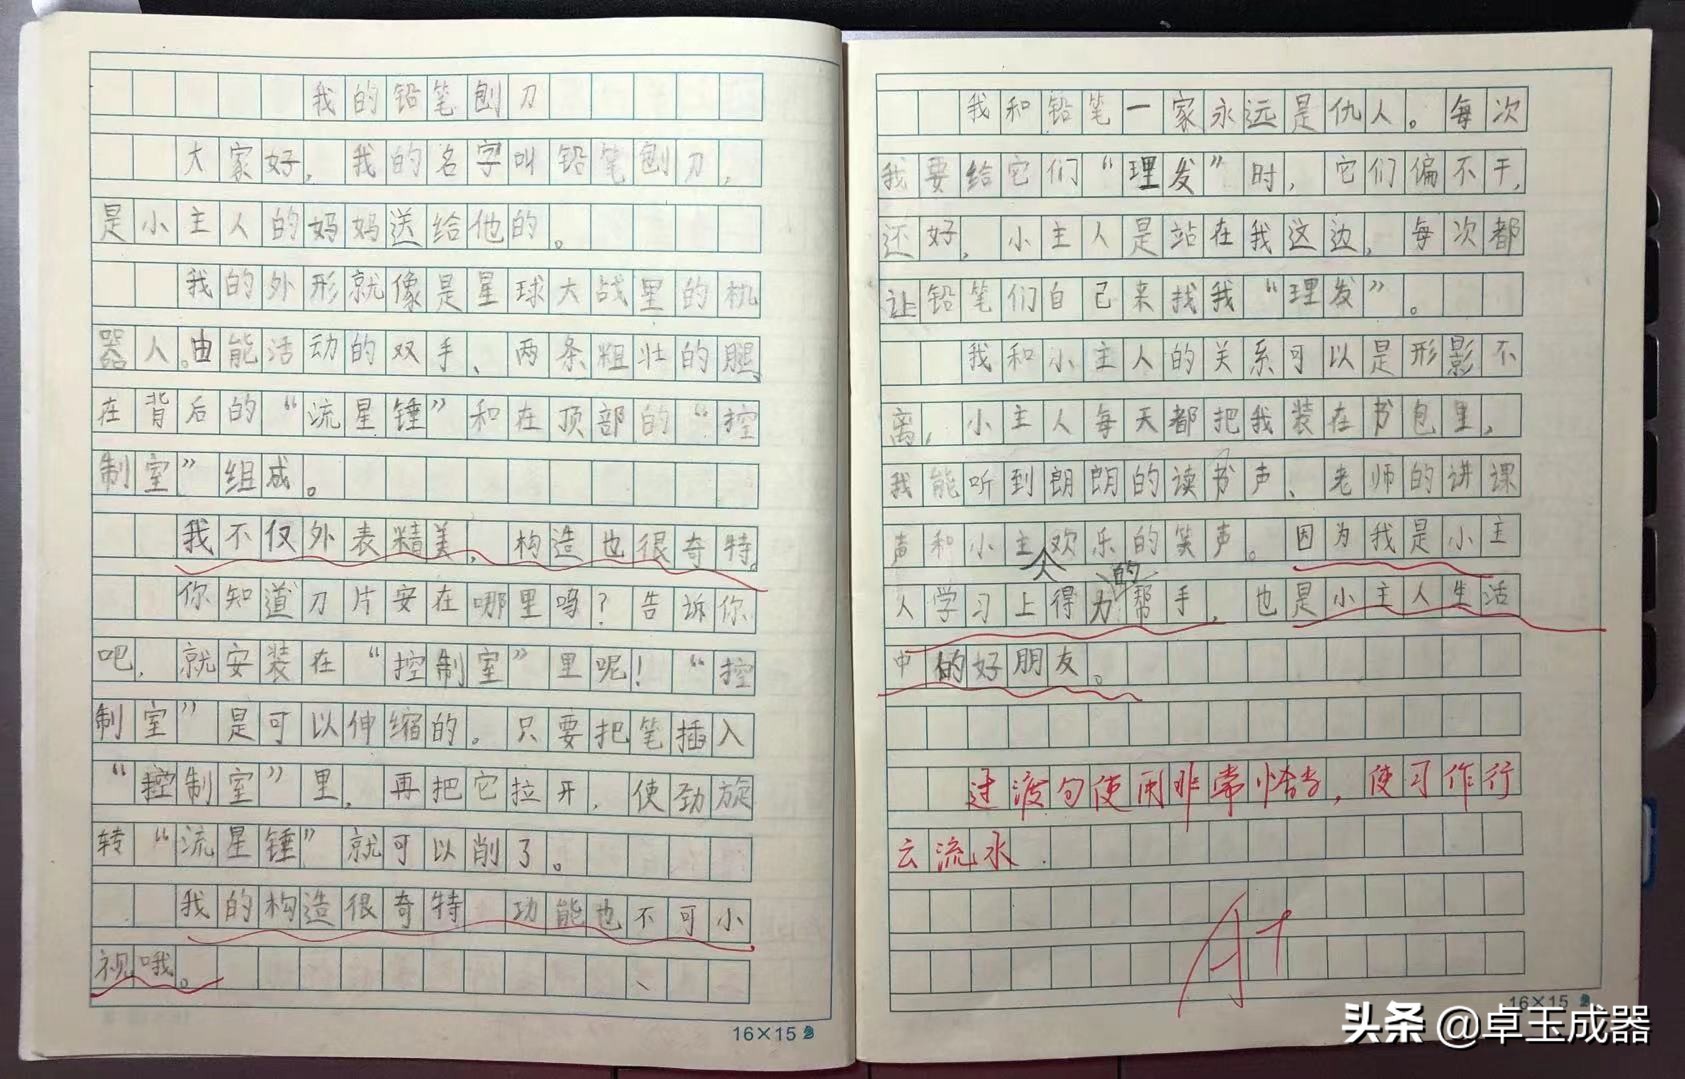 我的铅笔刨刀
大家好，我的名字叫铅笔刨刀，
是小主人的妈妈送给他的。
我的外形就像是星球大战里的机
器人。由能活动的双手、两条粗壮的腿、
在背后的“流星锤”和在顶部的“控
制室”组成。
我不仅外表精美，构造也很奇特。
你知道刀片安在哪里吗？告诉你
吧，就安装在“控制室”里呢！“控
制室”是可以伸缩的。只要把笔插入
“控制室”里，再把它拉开，使劲旋
转“流星锤”就可以削了。
我的构造很奇特 功能也不可小
视哦。
16×15
我和铅笔一家永远是仇人。每次
我要给它们“理发”时，它们偏不干，
还好，小主人是站在我这边，每次都
让铅笔们自己来找我“理发”。
我和小主人的关系可以是形影不
离，小主人每天都把我装在书包里，
我能听到朗朗的读书声、老师的讲课
声和小主人欢乐的笑声。因为我是小主
人学习上得力的帮手，也是小主人生活
中的好朋友。
过渡句使用非常恰当，使习作行
云流水．
A+
16×15
头条 @卓玉成器